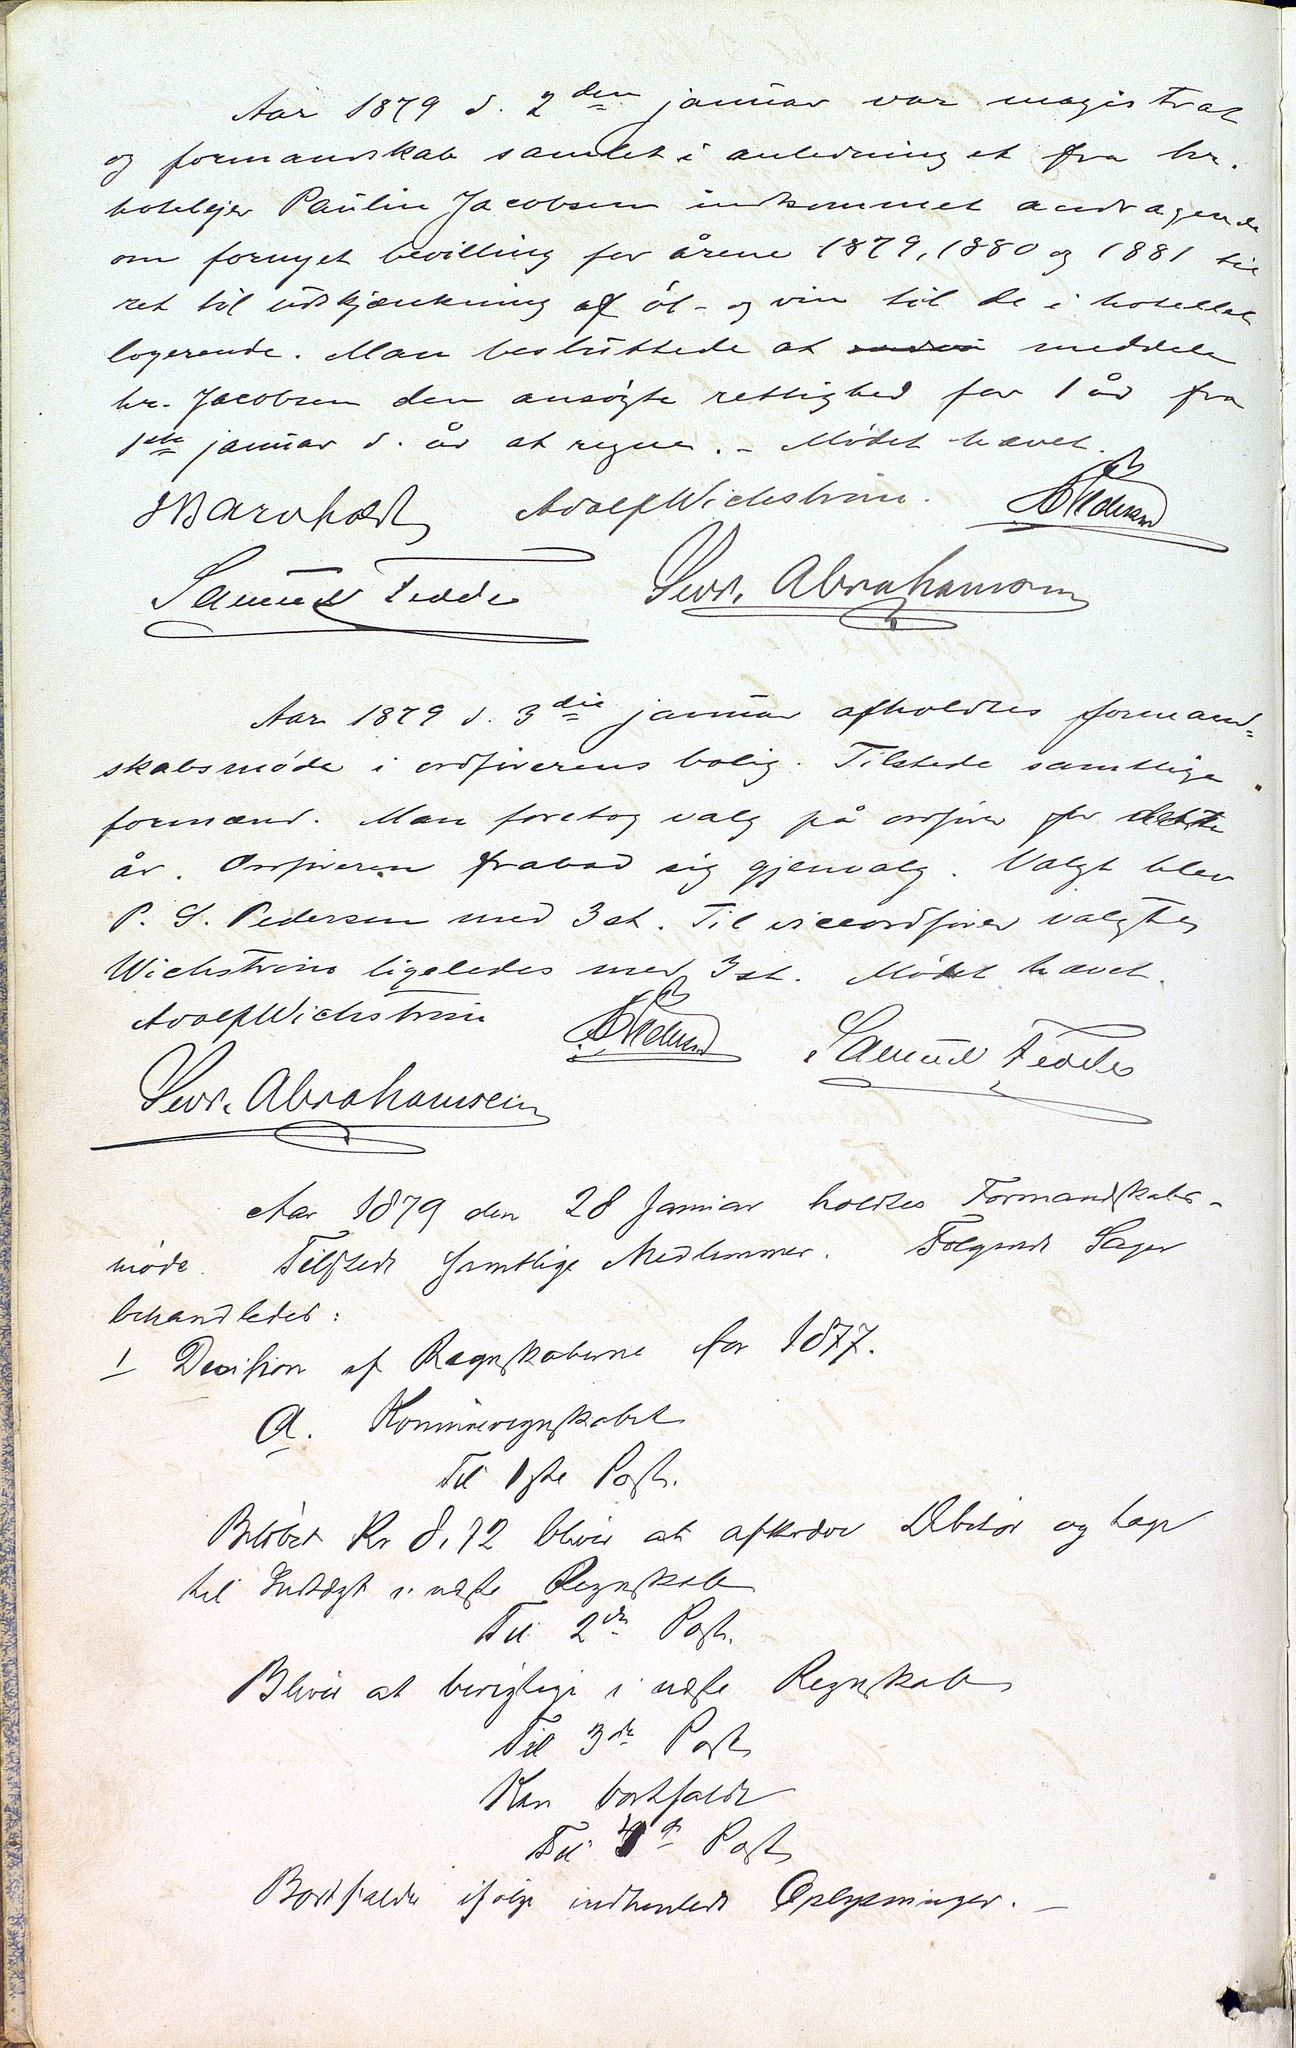 Aar 1879 d. 2den januar var magistrat
og formandskab samlet i anledning et fra hr.
hotelejer Paulin Jacobsen indkommet andragende
om fornyet bevilling for årene 1879, 1880 og 1881 til
ret til udskjænkning af öl- og vin til de i hotellet
logerende. Man besluttede at meddele
hr. Jacobsen den ansøgte rettighed for 1 år fra
1ste januar d. år at regne. - Mødet hævet.
Adolf Wichstrøm. P S Pedersen
Samuel Fedde Sevr. Abrahamsen
Aar 1879 d. 3die januar afholdtes formand=
skabsmøde i ordførerens bolig. Tilstede samtlige
formænd. Man foretog valg på ordfører for dette
år. Ordføreren frabad sig gjenvalg. Valgt blev
P. S. Pedersen med 3 st. Til viceordfører valgtes
Wichstrøm ligeledes med 3 st. Mødet hævet.
Adolf Wichstrøm P S Pedersen Samuel Fedde
Sevr. Abrahamsen
Aar 1879 den 28 Januar holdtes Formandskabs-
møde. Tilstede samtlige Medlemmer. Følgende Sager
behandledes:
1 Decision af Regnskaberne for 1877.
a. Kommuneregnskabet
Til 1ste Post.
Beløbet Kr 8,72 bliver at afkræve Debitor og tage
til Indtægt i næste Regnskab
Til 2den Post.
Bliver at berigtige i næste Regnskab
Til 3die Post
Kan bortfalde
Til 4de Post
Bortfalder ifølge indhentede Oplysninger. -